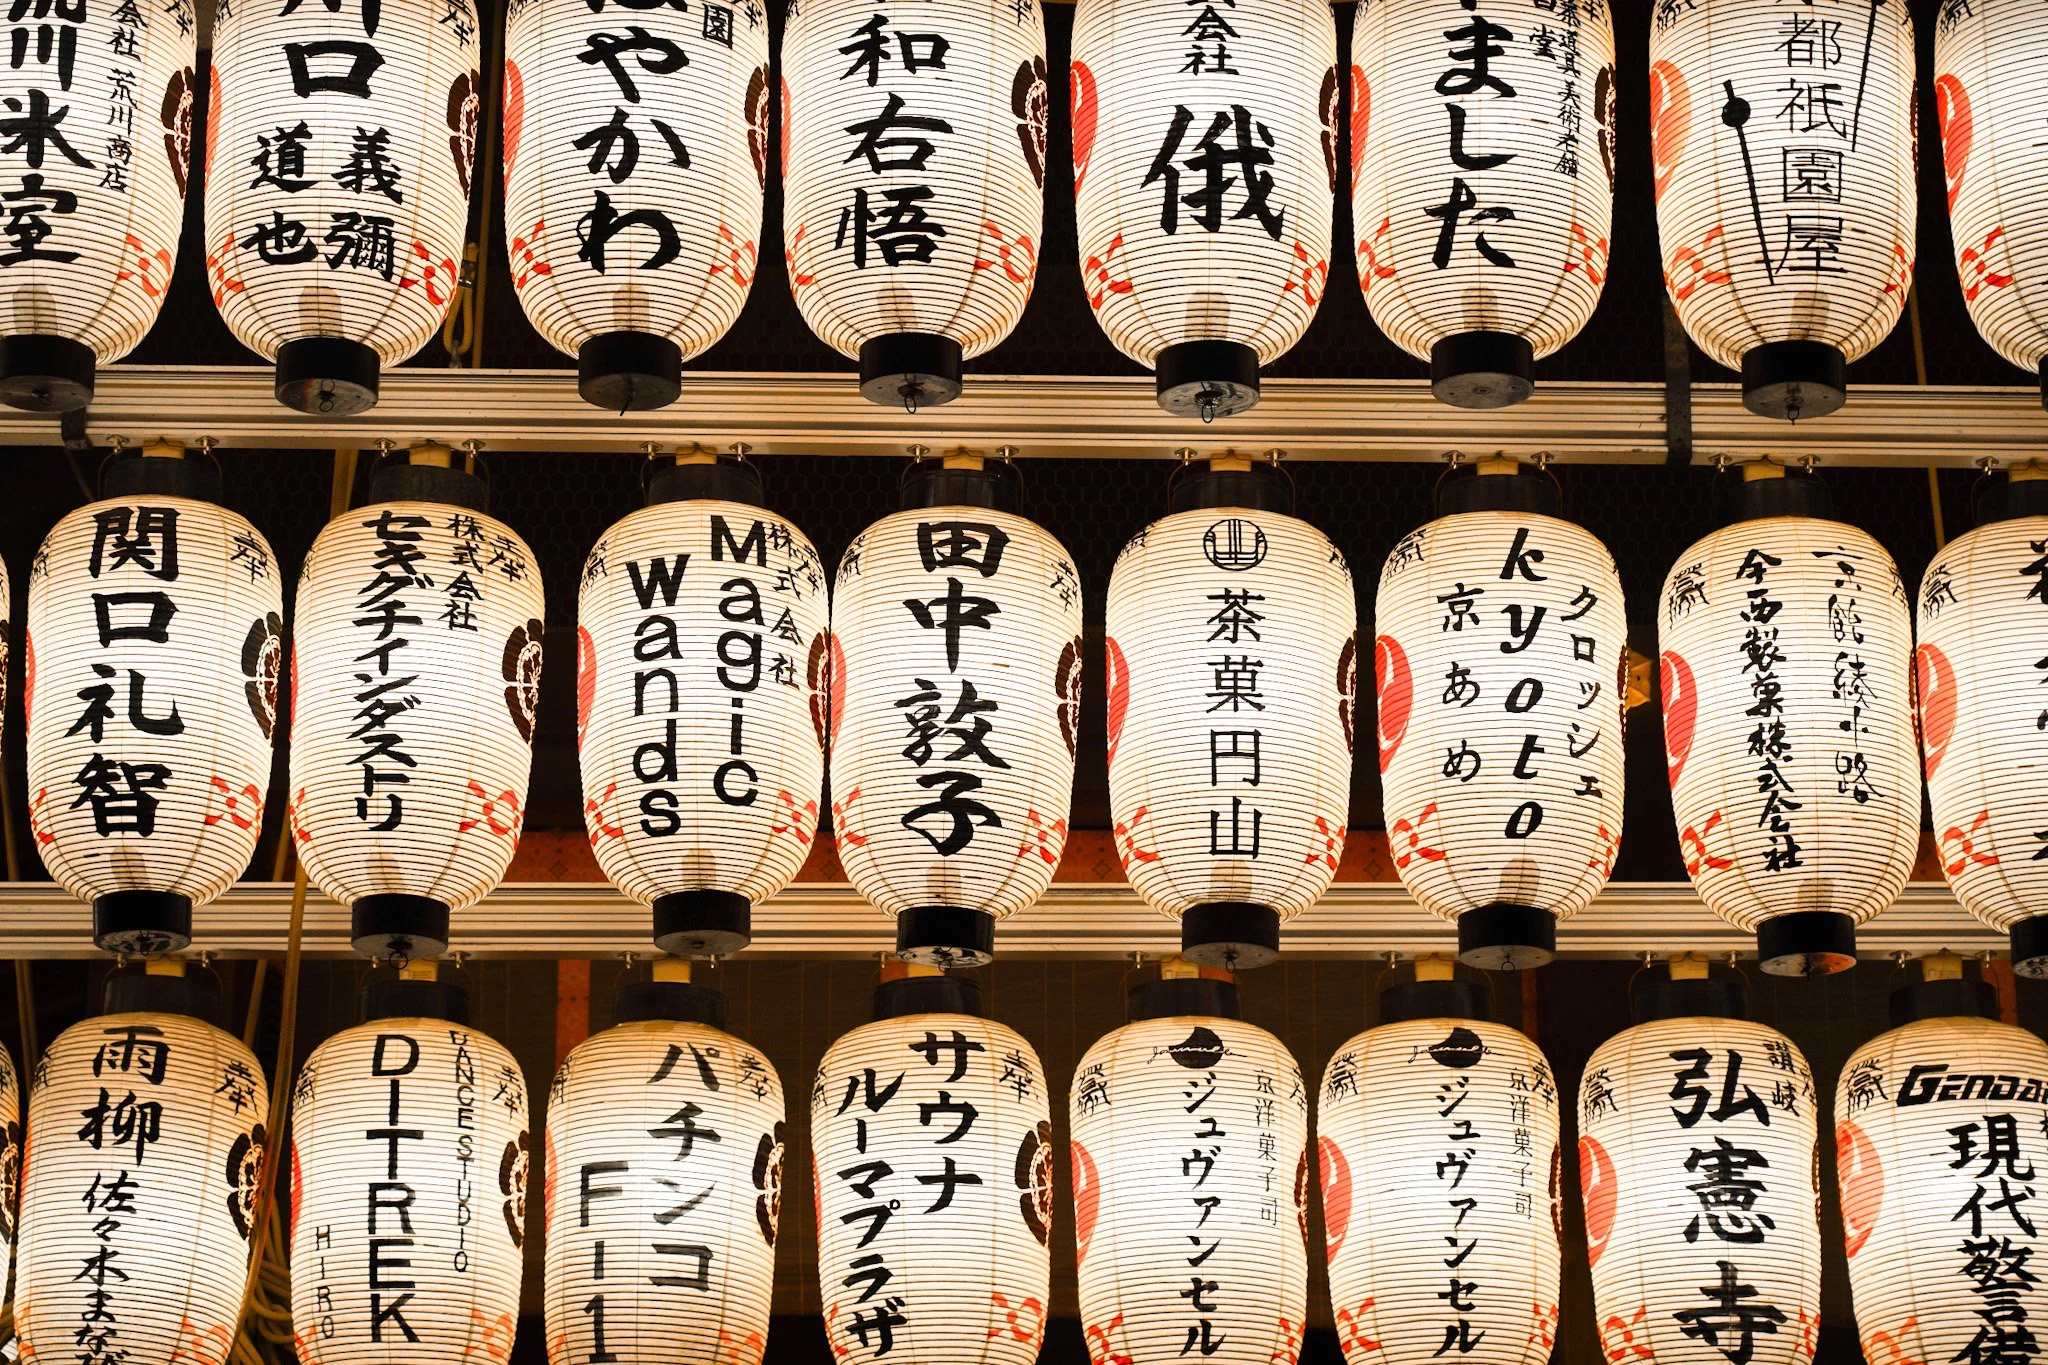 川氷室
会社 荒川商店
川口
義彌
道也
はやかわ
園
和右悟
会社
俄
ました
茶道具美術老舗
堂
都祇園屋
関口礼智
奉
株式会社
セキグチインダストリ
奉
株式会社
Magic
Wands
奉
献
田中敦子
奉
献
茶菓円山
献
クロッシェ
kyoto
京あめ
献
京能綾小路
今西製菓株式会社
献
献
雨柳
佐々木まなび
奉
DANCE STUDIO
DITREK
HIRO
奉
献
パチンコ
F11
奉
献
サウナ
ルーマプラザ
奉
献
京洋菓子司
ジュヴァンセル
奉
献
京洋菓子司
ジュヴァンセル
奉
献
讃岐
弘憲寺
献
GENDAI
現代警備
献